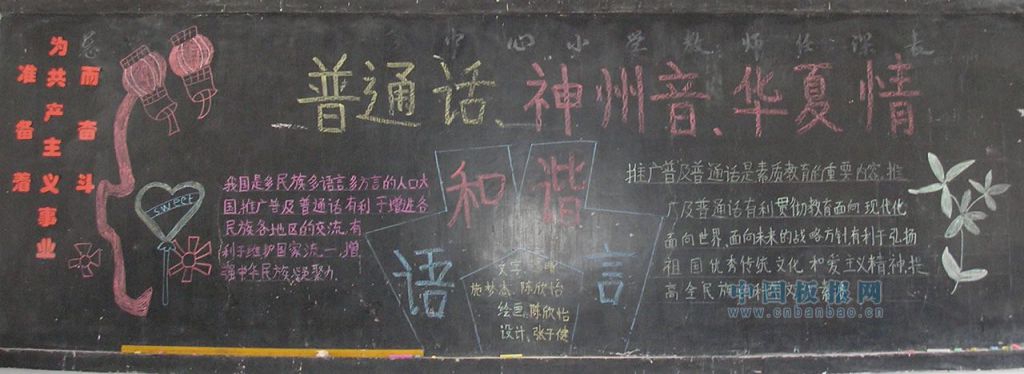 为共产主义事业
而奋斗
准备着
中心小学教师任课表
普通话、神州音、华夏情
和谐
语言
sweet
我国是多民族多语言多方言的人口大
国,推广普及普通话有利于增进各
民族各地区的交流,有
利于维护国家统一,增
强中华民族凝聚力.
推广普及普通话是素质教育的重要内容,推
广及普通话有利贯彻教育面向现代化
面向世界,面向未来的战略方针有利于弘扬
祖国优秀传统文化和爱主义精神,提
高全民族
文字:
陈欣怡
绘画:陈欣怡
设计:张子健
中国板报网
www.cnbanbao.cn